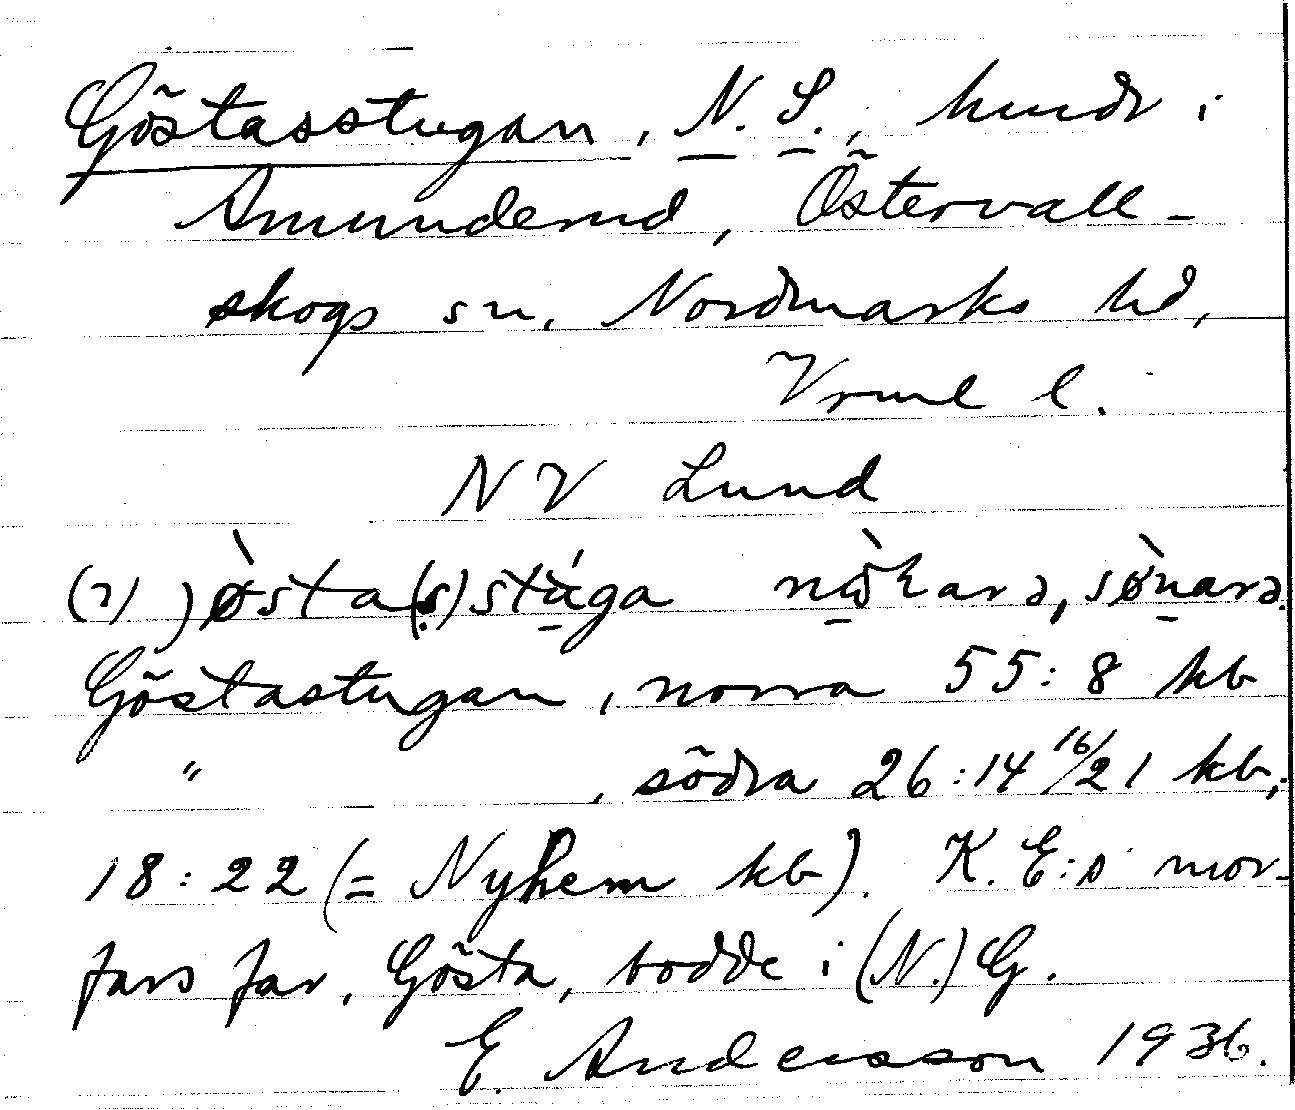 Göstasstugan, N. S., hmdr i
Amunderud, Östervall-
skogs sn, Nordmarks hd,
Vrml l.
NV Lund
(2) )òsta(s)stúga nòɷ̀Larə, sø̀narə.
Göstastugan, norra 55:8 kb
" , södra 26:14 16/21 kb,
18:22 (= Nyhem kb). K. E:s mor-
fars far, Gösta, bodde i (N.) G.
E. Andersson 1936.